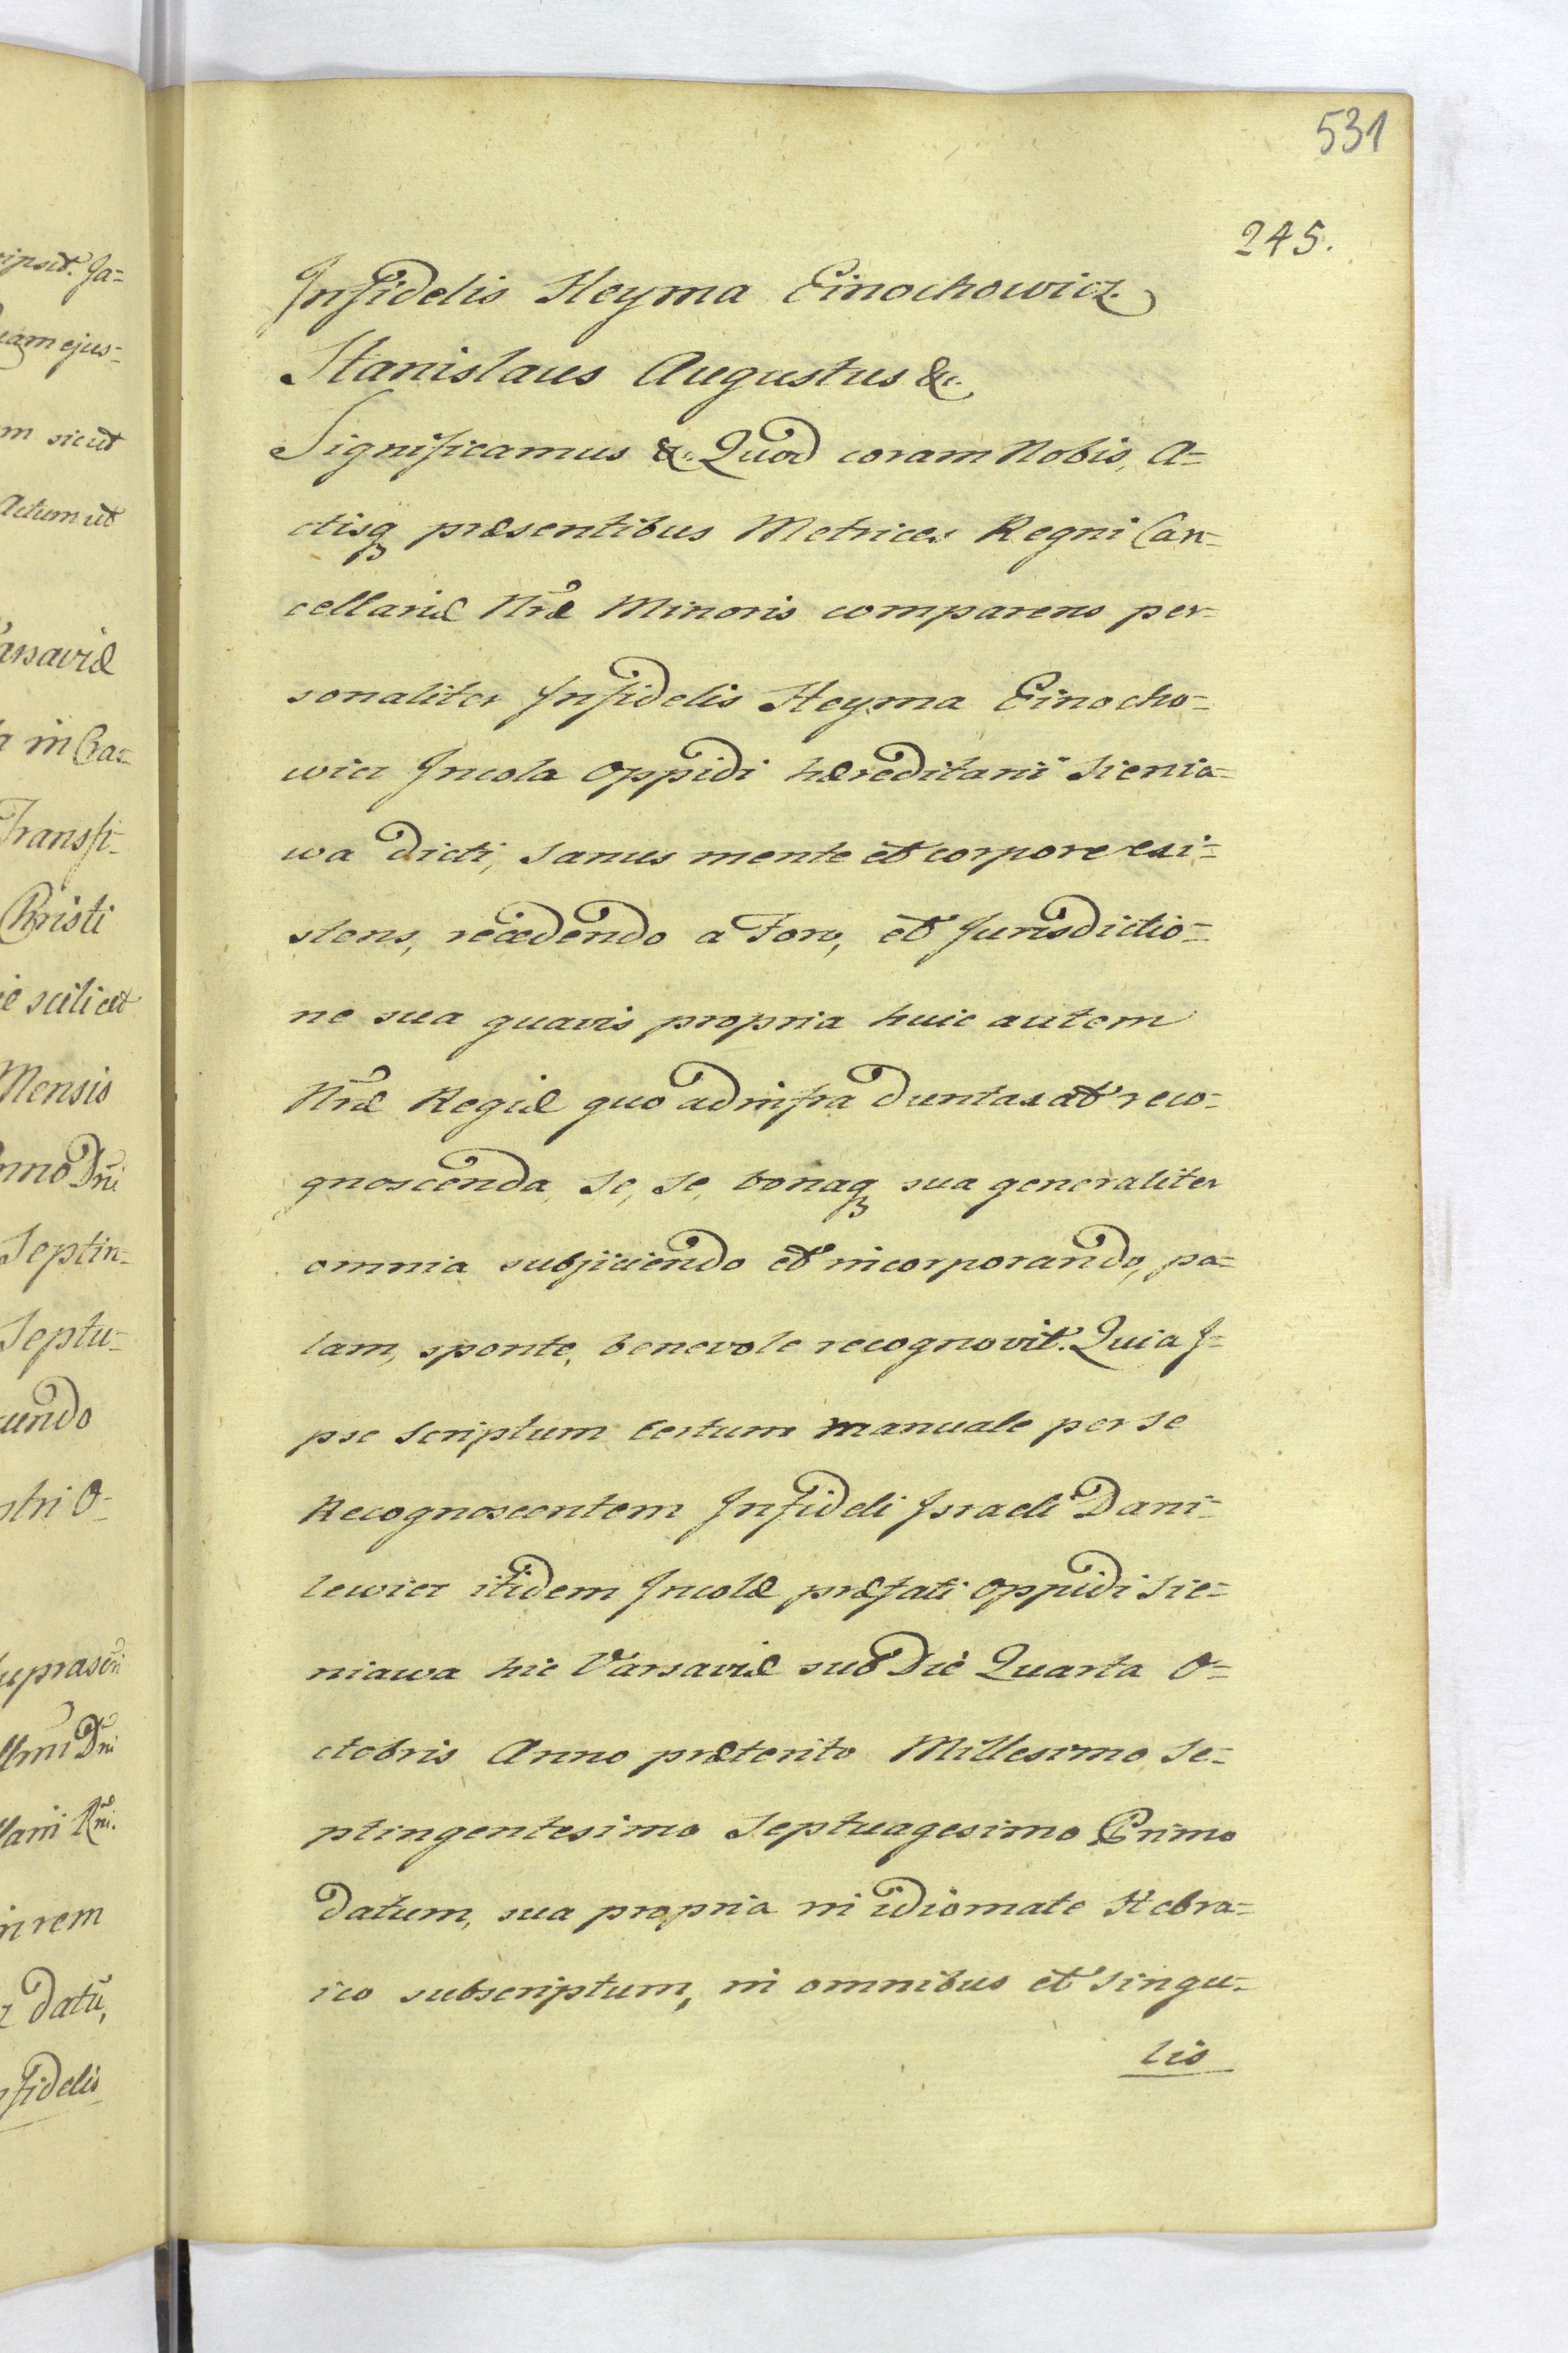 531
245.
Infidelis Heyma Einochowicz
Stanislaus Augustus &c.
Significamus &c. Quod coram Nobis, A=
ctisq3 præsentibus Metrices Regni Can=
cellariæ Nr̃æ Minoris comparens per=
sonaliter Infidelis Heyma Einocho=
wicz Incola Oppidi hæreditarii Sienia=
wa dicti, sanus mente et corpore exi=
stens, recedendo a Foro, et Jurisdictio=
ne sua quavis propria huic autem
Nr̃æ Regiæ quo ad infra duntaxat reco=
gnoscenda, se, se, bonaq3 sua generaliter
omnia subjiciendo et incorporando, pa=
lam, sponte, benevole recognovit. Quia I=
pse Scriptum certum manuale per se
Recognoscentem Infideli Israeli Dani=
lewicz itidem Incolæ præfati Oppidi Sie=
niawa hic Varsaviæ sub Die Quarta O=
ctobris Anno præterito Millesimo Se=
ptingentesimo Septuagesimo Primo
datum, sua propria in idiomate Hebra=
ico subscriptum, in omnibus et singu=
lis
ipsit. Ja=
uam ejus=
m sicut
Actum ut
arsaviæ
a in Cra=
Transfi=
Christi
scilicet
Mensis
nno Dn̄i
Septin=
Septu=
undo
stri O=
uprascri
Dn̄i
in rem
z datū,
nfidelis